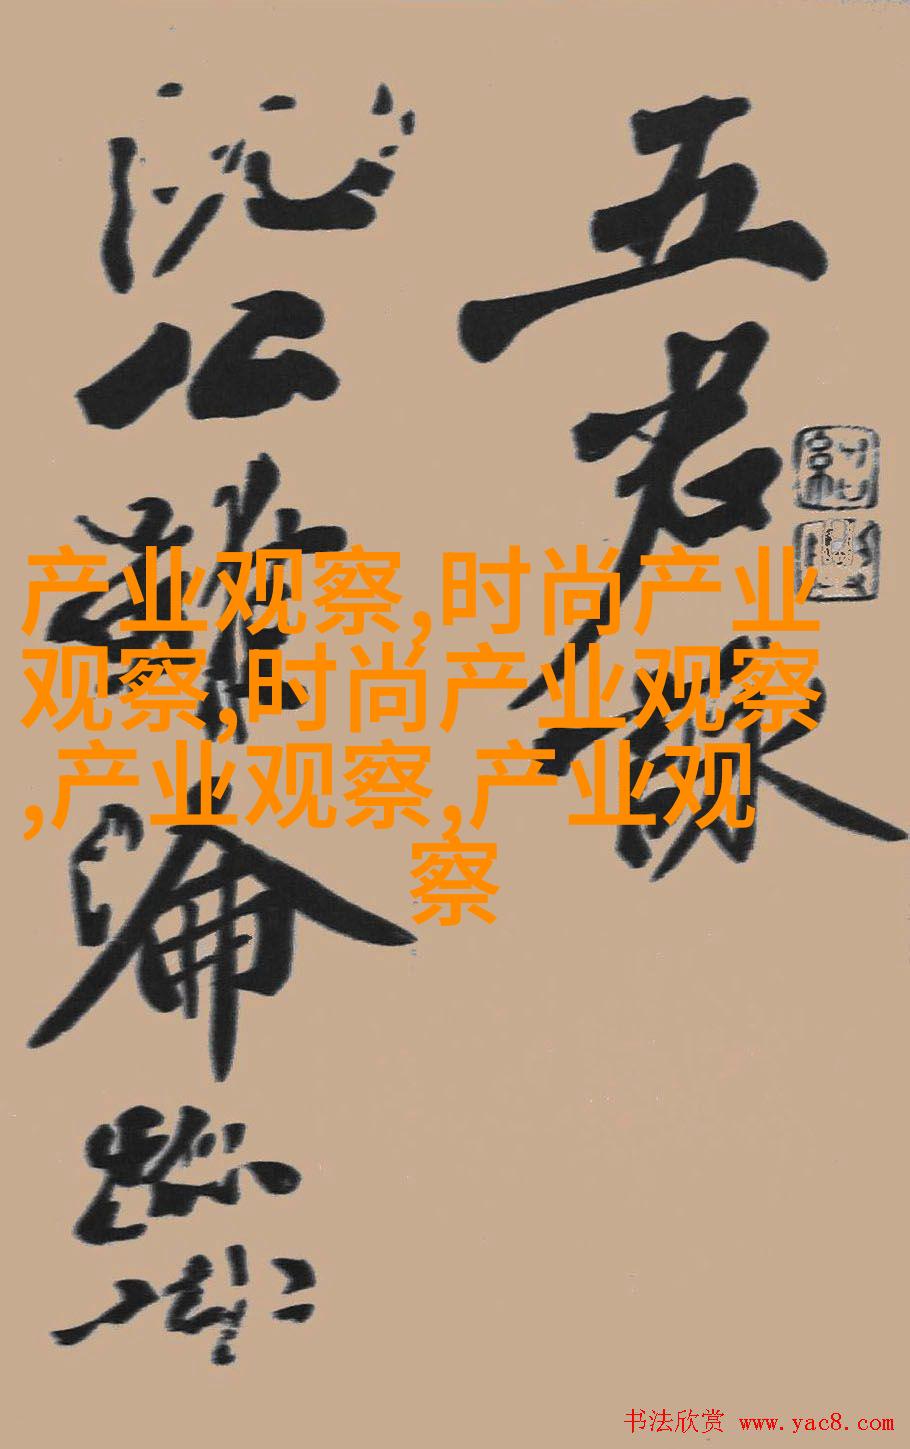 五君詠
阮公雖淪跡
产业观察,时尚产业
观察,时尚产业观察
,产业观察,产业观
察
书法欣赏 www.yac8.com